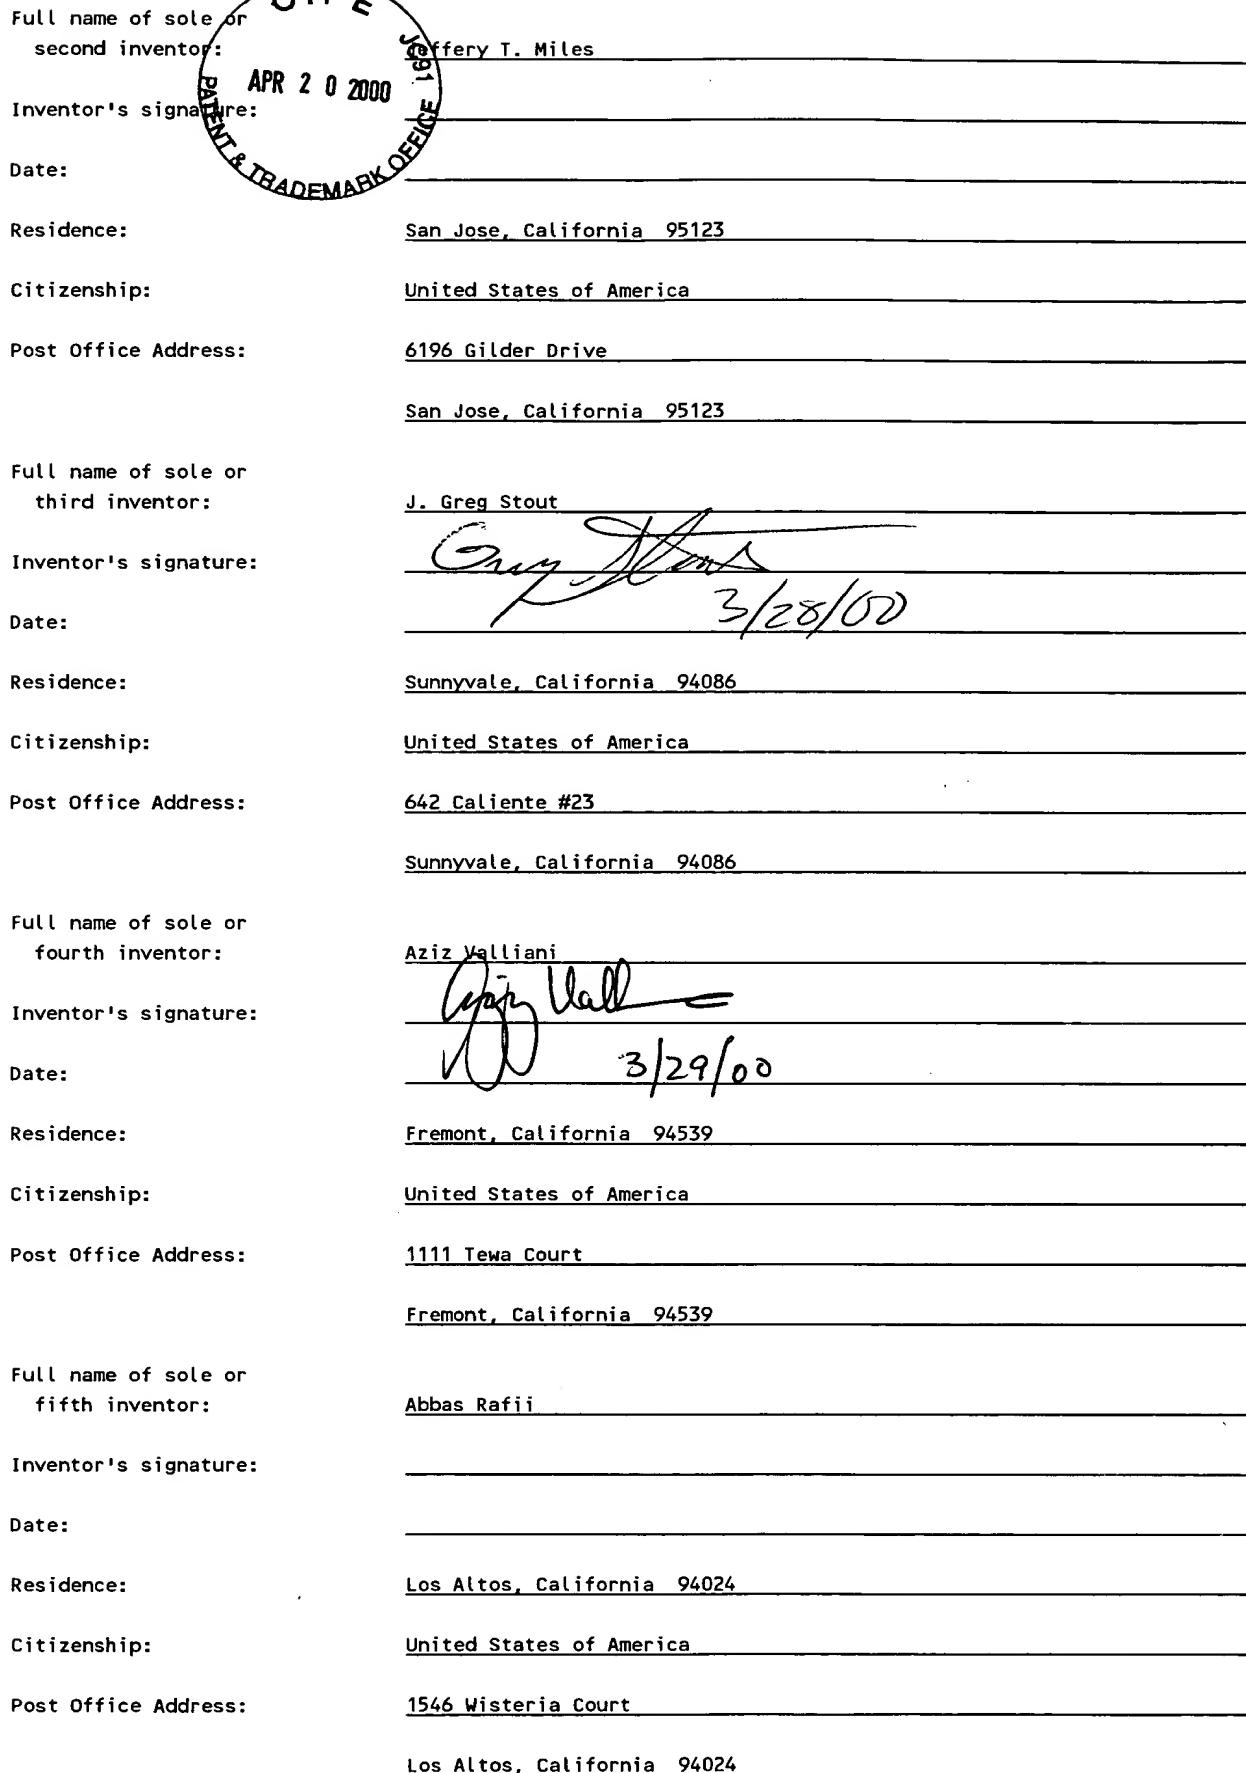 Full name of sole or
second inventor: Jeffery T. Miles
O I P E JC91
APR 2 0 2000
PATENT & TRADEMARK OFFICE
Inventor's signature:
Date:
Residence: San Jose, California 95123
Citizenship: United States of America
Post Office Address: 6196 Gilder Drive
San Jose, California 95123
Full name of sole or
third inventor: J. Greg Stout
Inventor's signature: Greg Stout
Date: 3/28/00
Residence: Sunnyvale, California 94086
Citizenship: United States of America
Post Office Address: 642 Caliente #23
Sunnyvale, California 94086
Full name of sole or
fourth inventor: Aziz Valliani
Inventor's signature:
Date: 3/29/00
Residence: Fremont, California 94539
Citizenship: United States of America
Post Office Address: 1111 Tewa Court
Fremont, California 94539
Full name of sole or
fifth inventor: Abbas Rafii
Inventor's signature:
Date:
Residence: Los Altos, California 94024
Citizenship: United States of America
Post Office Address: 1546 Wisteria Court
Los Altos, California 94024